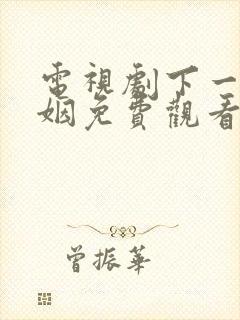 電視劇下一
姻免費觀看
曾振華